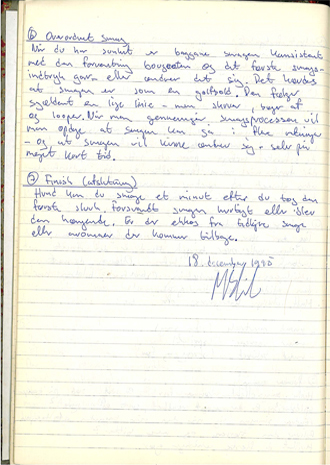 ⑥ Overordnet smag
Når du har sunket er baggane smagen konsistant
med den forventning bouqueten og det første smags-
indtryk gav eller ændrer det sig. Det hævdes
at smagen er som en golfbold. Den følger
sjældent en lige linie - men skruer, bøjer af
og looper. Når man gennemgår smagsprocessen vil
man opdage at smagen kan gå i flere retninger
- og at smagen vil kunne ændre sig - selv på
meget kort tid.
⑦ Finish (afslutning)
Hvad kan du smage et minut efter du tog den
første slurk, forsvandt smagen hurtigt eller blev
den hængende. Er der ekkoer fra tidligere smage
eller aromaer der kommer tilbage.
18. december 1995